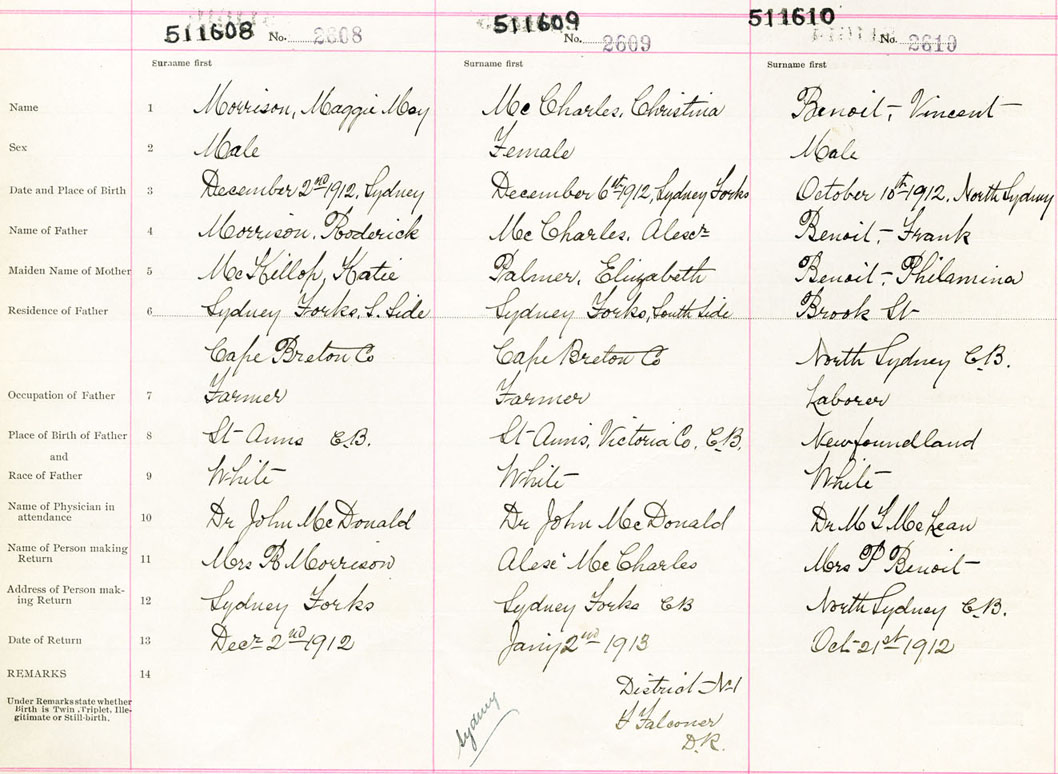 511608 No. 2608
511609 No. 2609
511610 No. 2610
Surname first Surname first Surname first
Name 1 Morrison, Maggie May Mc Charles, Christina Benoit, Vincent
Sex 2 Male Female Male
Date and Place of Birth 3 December 2nd 1912, Sydney December 6th 1912, Sydney Forks October 10th 1912, North Sydney
Name of Father 4 Morrison, Roderick Mc Charles, Alexr Benoit, Frank
Maiden Name of Mother 5 McKillop, Katie Palmer, Elizabeth Benoit, Philamina
Residence of Father 6 Sydney Forks, S. Side Sydney Forks, South Side Brook St
Cape Breton Co Cape Breton Co North Sydney C.B.
Occupation of Father 7 Farmer Farmer Laborer
Place of Birth of Father 8 St Anns C.B. St Anns, Victoria Co, C.B. Newfoundland
and
Race of Father 9 White White White
Name of Physician in
attendance 10 Dr John McDonald Dr John McDonald Dr M McLean
Name of Person making
Return 11 Mrs R Morrison Alex McCharles Mrs P Benoit
Address of Person mak-
ing Return 12 Sydney Forks Sydney Forks CB North Sydney C.B.
Date of Return 13 Decr 2nd 1912 Jany 2nd 1913 Oct 21st 1912
REMARKS 14
Under Remarks state whether
Birth is Twin, Triplet, Ille-
gitimate or Still-birth.
District No 1
Falconer
D.R.
Sydney